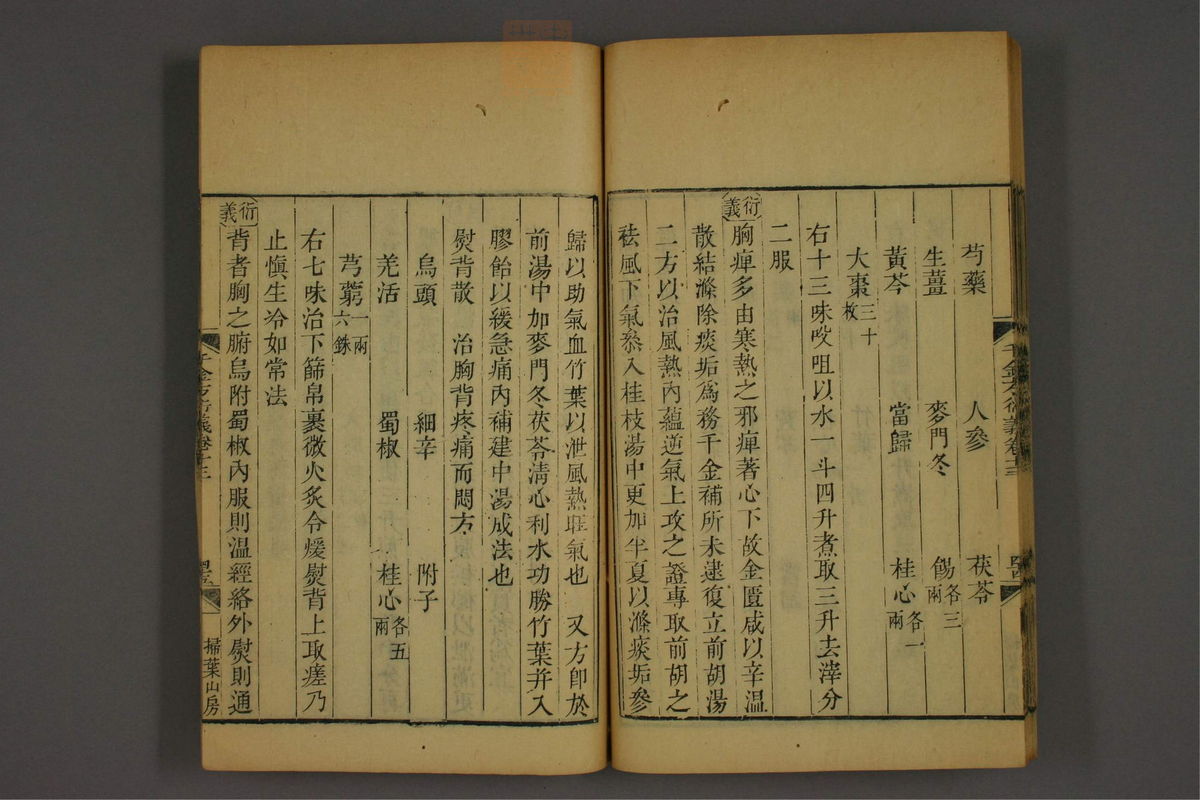 芍藥 人參 茯苓
生薑 麥門冬 餳各三兩
黃芩 當歸 桂心各一兩
大棗三十枚
右十三味㕮咀以水一斗四升煮取三升去滓分
二服
衍義
胸痺多由寒熱之邪痺著心下故金匱咸以辛溫
散結滌除痰垢爲務千金補所未逮復立前胡湯
二方以治風熱內蘊逆氣上攻之證專取前胡之
祛風下氣叅入桂枝湯中更加半夏以滌痰垢參
千金方衍義卷十三
歸以助氣血竹葉以泄風熱旺氣也 又方卽於
前湯中加麥門冬茯苓清心利水功勝竹葉并入
膠飴以緩急痛內補建中湯成法也
熨背散 治胸背疼痛而悶方
烏頭 細辛 附子
羌活 蜀椒 桂心各五兩
芎藭一兩六銖
右七味治下篩帛裹微火炙令煖熨背上取瘥乃
止愼生冷如常法
衍義
背者胸之腑烏附蜀椒內服則温經絡外熨則通
千金方衍義卷十三
掃葉山房